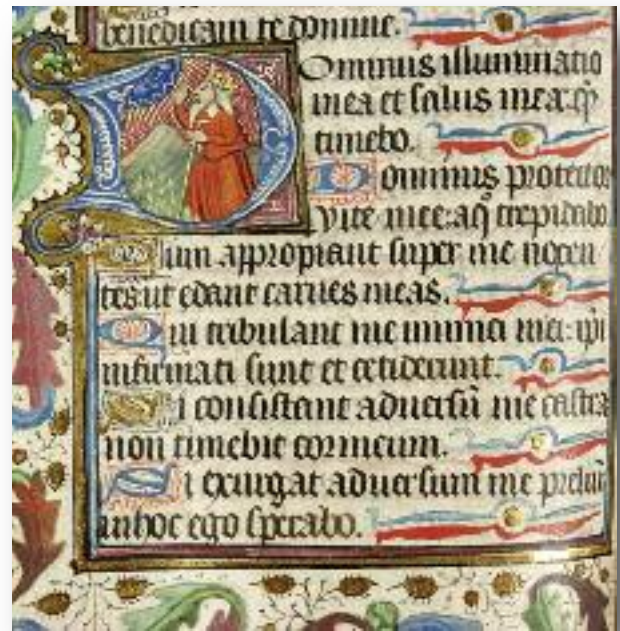 benedicam te domine.
Ominus illuminatio
mea et salus mea: q̄
timebo.
Dominus protector
vite mee: a q̄ trepidabo
Dum appropiant super me nocen
tes ut edant carnes meas.
Qui tribulant me inimici mei: ip̄i
infirmati sunt et ceciderunt.
Si consistant adversū me castra
non timebit cor meum.
Si exurgat adversum me preliū
in hoc ego sperabo.